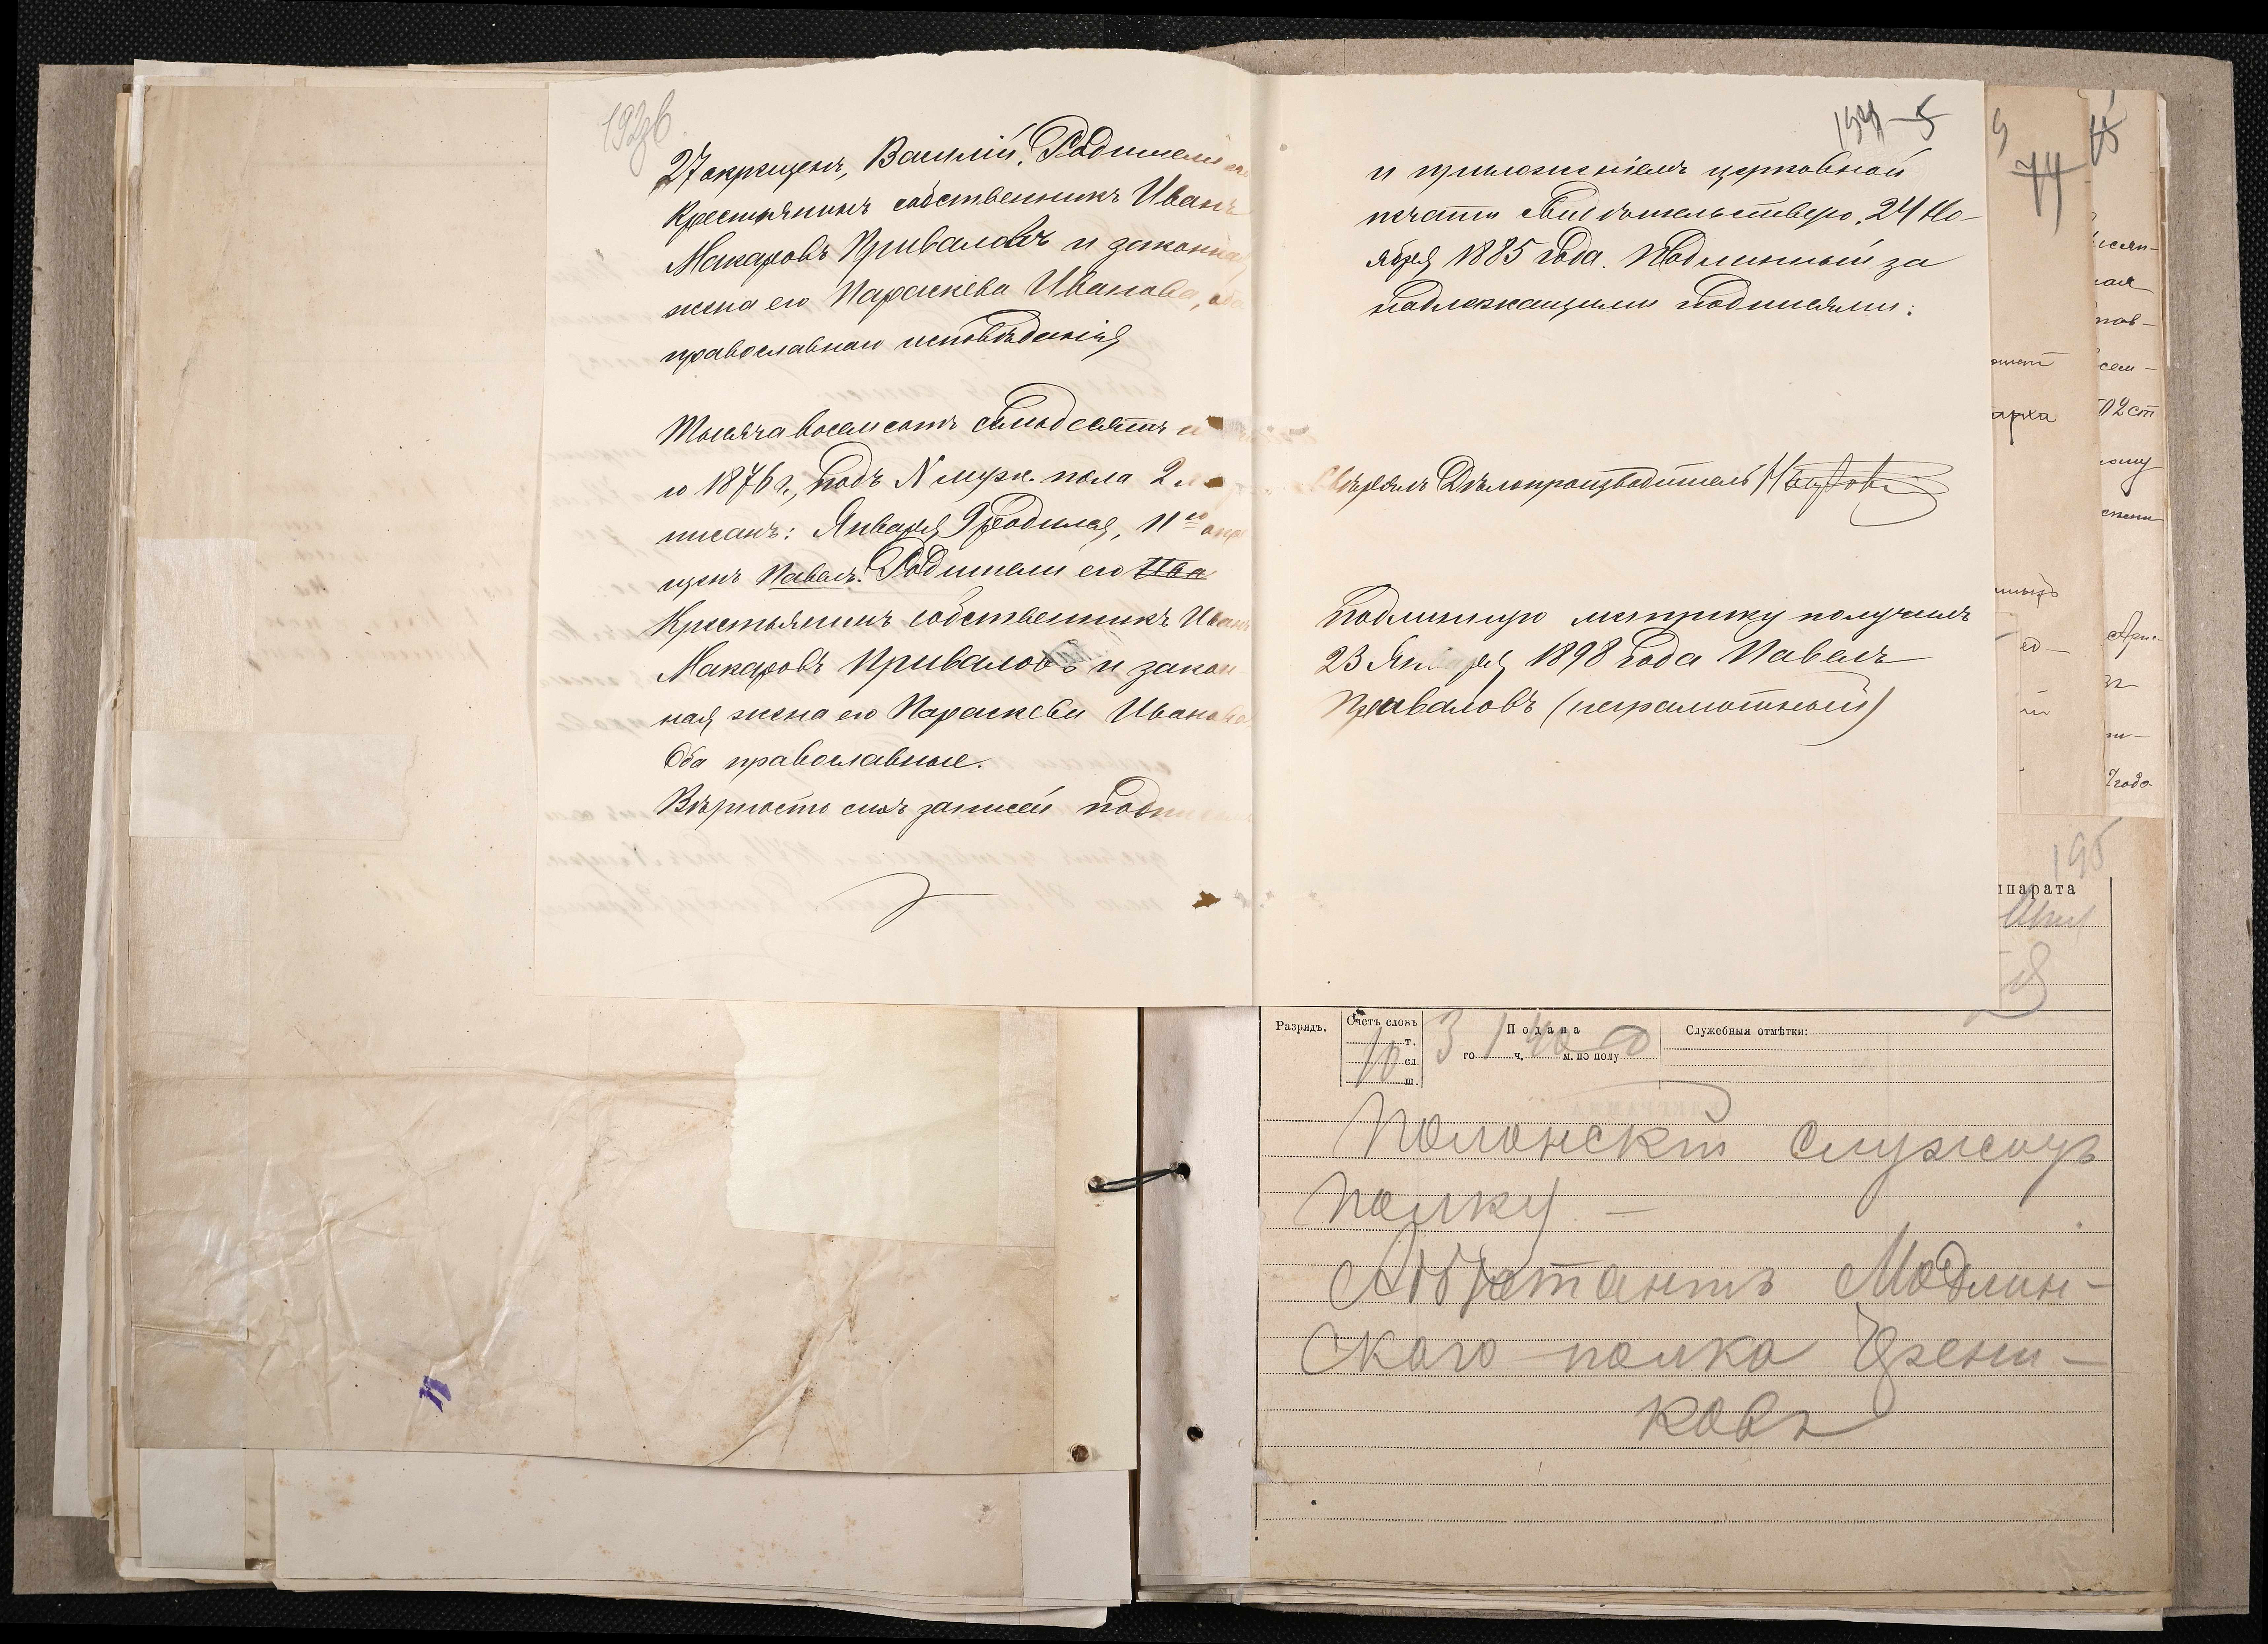 27 окрещенъ, Василій, Родители его
Крестьянинъ собственникъ Иванъ
Макаровъ Приваловъ и законная
жена его Параскева Иванова,
православнаго исповѣданія
Тысяча восемсотъ семьдесятъ
го 1876 г., подъ N мужс. пола 2
писанъ: Января 9 родился, 11го окре
щенъ Павелъ. Родители его Ива
Крестьянинъ собственникъ Иванъ
Макаровъ Приваловъ и закон
ная жена его Параскева Иванова
Оба православные.
Вѣрность сихъ записей подпи
194 5
и приложеніемъ церковной
печати свидѣтельствую. 24 Но-
ября 1885 года. Подлинный за
надлежащими подписями:
Свѣрялъ Дѣлопроизводитель
Подлинную метрику получилъ
23 Января 1898 года Павелъ
Приваловъ (неграмотный)
74
арха
195
ппарата
Разрядъ.
Счетъ словъ
10
т.
сл.
ш.
Подана
3 го 1 ч. 40 м. по полу
Служебныя отмѣтки:
Полонскій служитъ
полку —
Адъютантъ Модлин-
скаго полка
ковъ